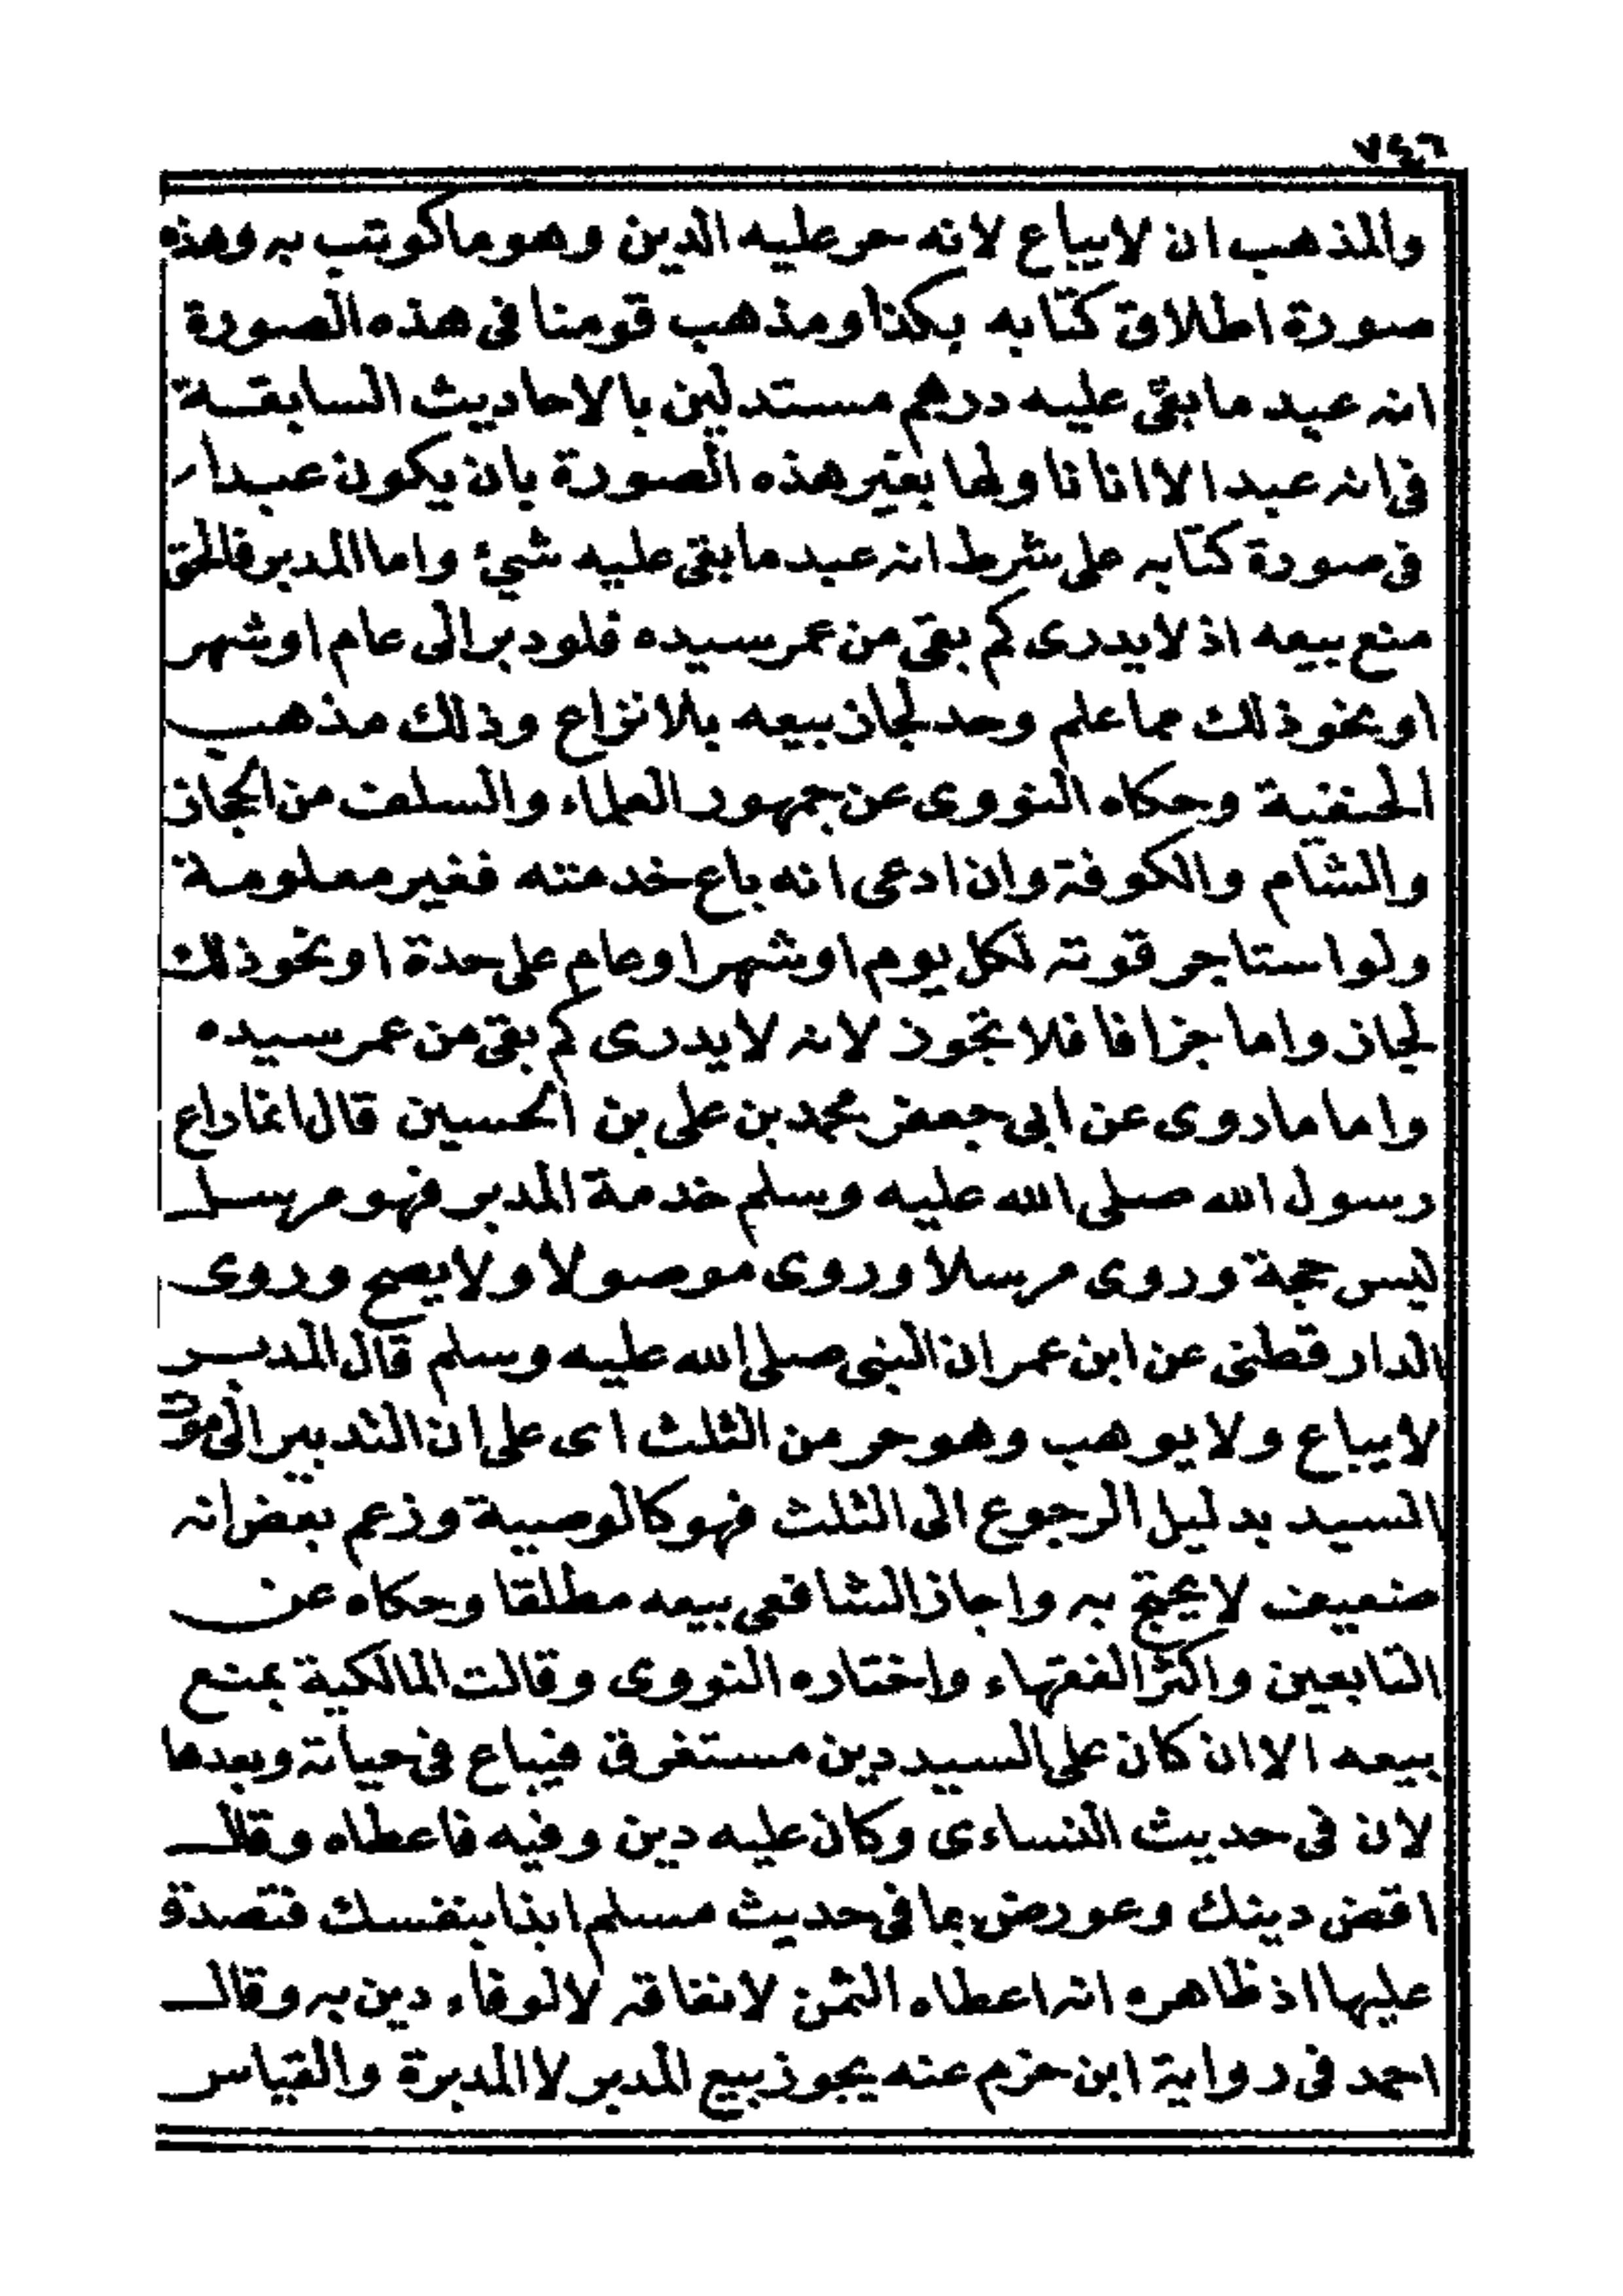 ٧٤٦
والمذهب ان لا يباع لانه حر عليه الدين وهو ما كوتب به وهذه
صورة اطلاق كتابه بكذا ومذهب قومنا في هذه الصورة
انه عبد ما بقي عليه درهم مستدلين بالاحاديث السابقة
في انه عبد الا انا ناولها بغير هذه الصورة بان يكون عبدا
في صورة كتابه على شرط انه عبد ما بقي عليه شيئ واما المدبر فالحق
منع بيعه اذ لا يدرى كم بقي من عمر سيده فلو دبر الى عام او شهر
او نحو ذلك مما علم وحد لجاز بيعه بلا نزاع وذلك مذهب
الحنفية وحكاه النووى عن جمهور العلماء والسلف من الحجاز
والشام والكوفة وان ادعى انه باع خدمته فغير معلومة
ولو استاجر قوته لكل يوم او شهر او عام على حدة او نحو ذلك
لجاز واما جزافا فلا تجوز لانه لا يدرى كم بقي من عمر سيده
واما ما روى عن ابى جعفر محمد بن على بن الحسين قال انما باع
رسول الله صلى الله عليه وسلم خدمة المدبر فهو مرسل
ليس حجة وروى مرسلا وروى موصولا ولا يصح وروى
الدارقطنى عن ابن عمر ان النبي صلى الله عليه وسلم قال المدبر
لا يباع ولا يوهب وهو حر من الثلث اى على ان التدبير الى موت
السيد بدليل الرجوع الى الثلث فهو كالوصية وزعم بعض انه
ضعيف لا يحتج به واجاز الشافعي بيعه مطلقا وحكاه عن
التابعين واكثر الفقهاء واختاره النووى وقالت المالكية بمنع
بيعه الا ان كان على السيد دين مستغرق فيباع في حياته وبعدها
لان في حديث النساءى وكان عليه دين وفيه فاعطاه وقال
اقض دينك وعورض بما في حديث مسلم ابدا بنفسك فتصدق
عليها اذ ظاهره انه اعطاه الثمن لانفاقه لا لوفاء دين به وقال
احمد في رواية ابن حزم عنه يجوز بيع المدبر لا المدبرة والقياس